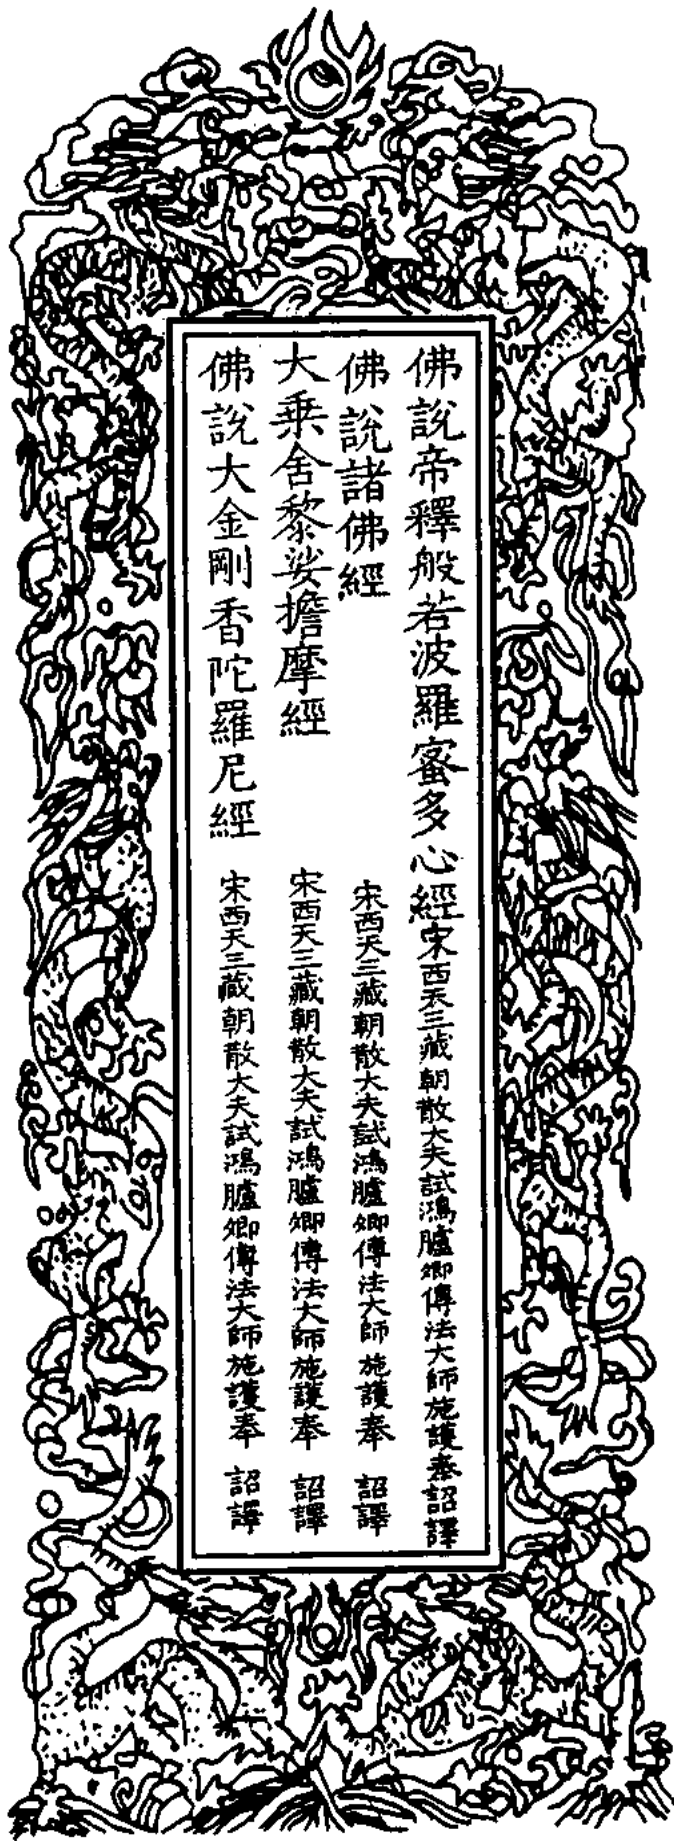 佛說帝釋般若波羅蜜多心經宋西天三藏朝散大夫試鴻臚卿傳法大師施護奉詔譯
佛說諸佛經 宋西天三藏朝散大夫試鴻臚卿傳法大師施護奉 詔譯
大乘舍黎娑擔摩經 宋西天三藏朝散大夫試鴻臚卿傳法大師施護奉 詔譯
佛說大金剛香陀羅尼經 宋西天三藏朝散大夫試鴻臚卿傳法大師施護奉 詔譯